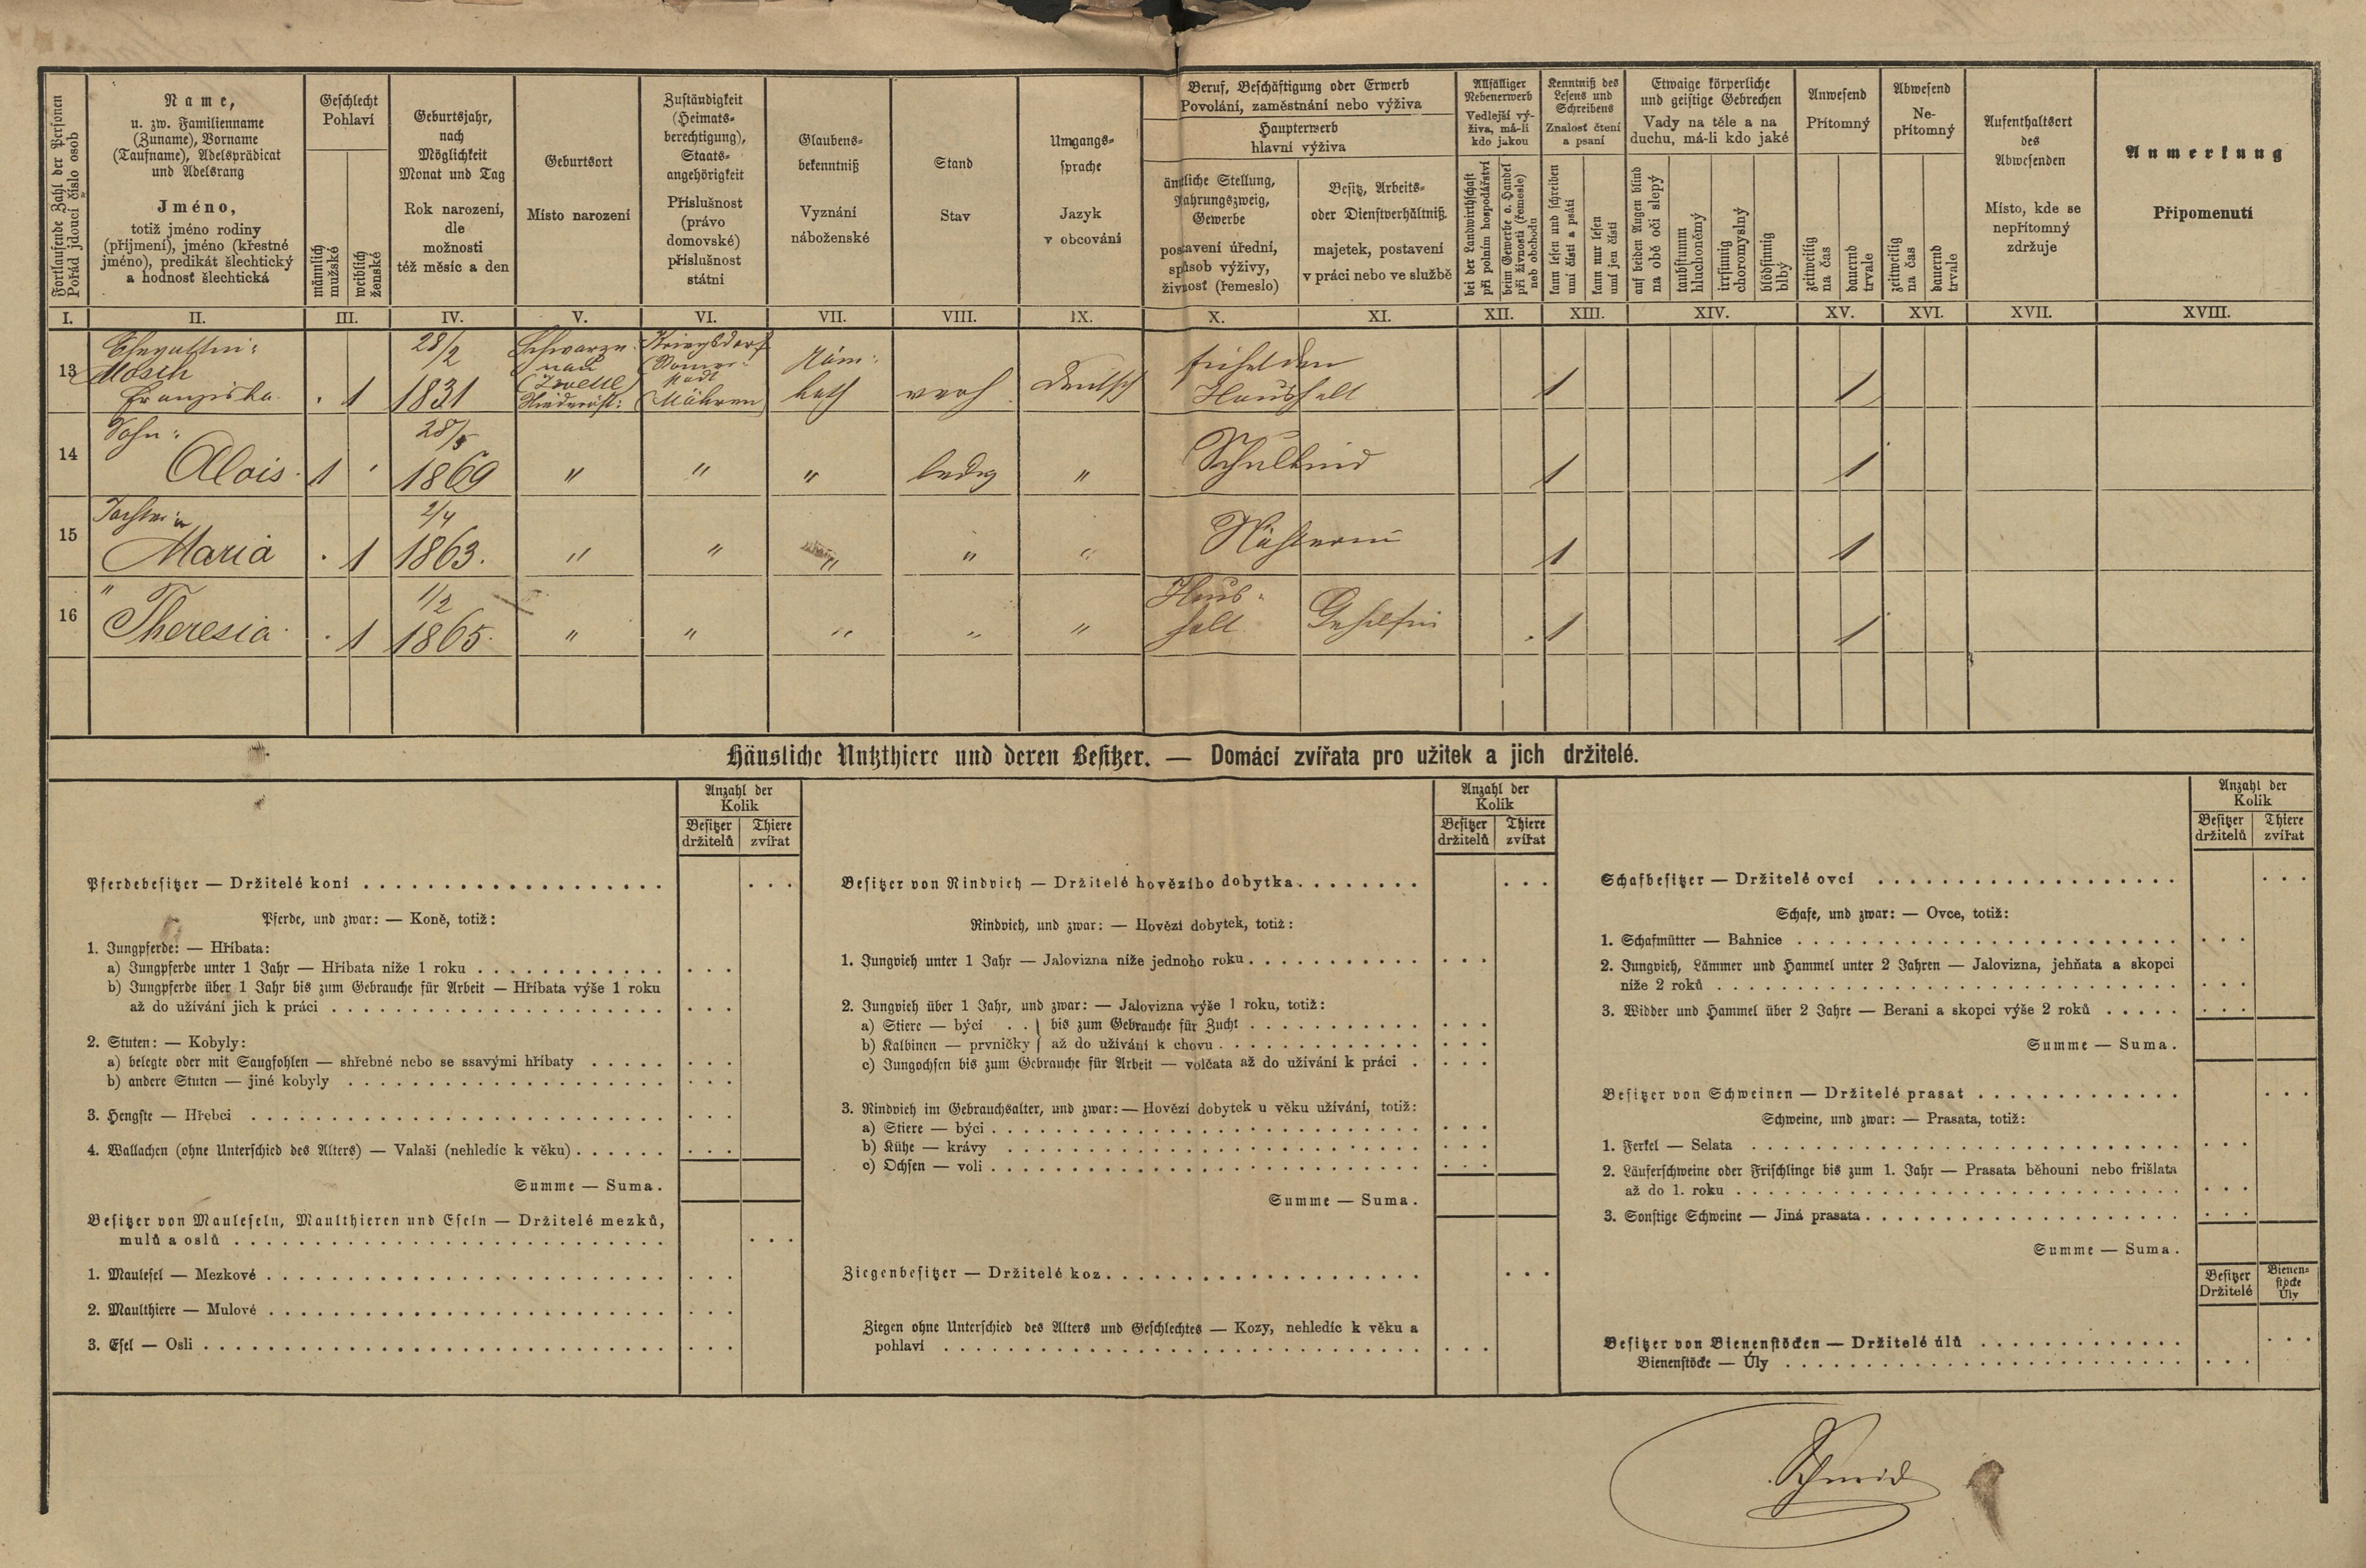 Fortlaufende Zahl der Personen
Pořád jdoucí číslo osob
Name,
u. zw. Familienname
(Zuname), Vorname
(Taufname), Adelsprädicat
und Adelsrang
Jméno,
totiž jméno rodiny
(příjmení), jméno (křestné
jméno), predikát šlechtický
a hodnosť šlechtická
Geschlecht
Pohlaví
männlich
mužské
weiblich
ženské
Geburtsjahr,
nach
Möglichkeit
Monat und Tag
Rok narození,
dle
možnosti
též měsíc a den
Geburtsort
Místo narození
Zuständigkeit
(Heimats-
berechtigung),
Staats-
angehörigkeit
Příslušnost
(právo
domovské)
příslušnost
státní
Glaubens-
bekenntniß
Vyznání
náboženské
Stand
Stav
Umgangs-
sprache
Jazyk
v obcování
Beruf, Beschäftigung oder Erwerb
Povolání, zaměstnání nebo výživa
Haupterwerb
hlavní výživa
ämtliche Stellung,
Nahrungszweig,
Gewerbe
postavení úřední,
spůsob výživy,
živnosť (řemeslo)
Besitz, Arbeits-
oder Dienstverhältniß.
majetek, postavení
v práci nebo ve službě
Allfälliger
Nebenerwerb
Vedlejší vý-
živa, má-li
kdo jakou
bei der Landwirthschaft
při polním hospodářství
beim Gewerbe o. Handel
při živnosti (řemesle)
neb obchodu
Kenntniß des
Lesens und
Schreibens
Znalosť čtení
a psaní
kann lesen und schreiben
umí čísti a psáti
kann nur lesen
umí jen čísti
Etwaige körperliche
und geistige Gebrechen
Vady na těle a na
duchu, má-li kdo jaké
auf beiden Augen blind
na obě oči slepý
taubstumm
hluchoněmý
irrsinnig
choromyslný
blödsinnig
blbý
Anwesend
Přítomný
zeitweilig
na čas
dauernd
trvale
Abwesend
Ne-
přítomný
zeitweilig
na čas
dauernd
trvale
Aufenthaltsort
des
Abwesenden
Místo, kde se
nepřítomný
zdržuje
Anmerkung
Připomenutí
I. II. III. IV. V. VI. VII. VIII. IX. X. XI. XII. XIII. XIV. XV. XVI. XVII. XVIII.
13 Ehegattin:
Mosch
Franziska. . 1
28/2
1831
Schwarze-
nau
(Zwettl)
Niederöst:
Kriegsdorf
Mähren)
Röm:
kath
verh
deutsch
Haushalt
1 1
14 Sohn:
Alois. 1 ' 28/5 1869 " " " ledig " Schulkind 1 1
15 Tochter:
Maria . 1 2/4 1863. " " " " " Nähterin 1 1
16 "
Theresia . 1 1/2 1865. " " " " " Haus-
halt Gehilfin . 1 1
Häusliche Nutzthiere und deren Besitzer. — Domácí zvířata pro užitek a jich držitelé.
Anzahl der
Kolik
Besitzer
držitelů
Thiere
zvířat
Pferdebesitzer — Držitelé koní
Pferde, und zwar: — Koně, totiž:
1. Jungpferde: — Hříbata:
a) Jungpferde unter 1 Jahr — Hříbata níže 1 roku
b) Jungpferde über 1 Jahr bis zum Gebrauche für Arbeit — Hříbata výše 1 roku
až do užívání jich k práci
2. Stuten: — Kobyly:
a) belegte oder mit Saugfohlen — shřebné nebo se ssavými hříbaty
b) andere Stuten — jiné kobyly
3. Hengste — Hřebci
4. Wallachen (ohne Unterschied des Alters) — Valaši (nehledíc k věku)
Summe — Suma.
Besitzer von Mauleseln, Maulthieren und Eseln — Držitelé mezků,
mulů a oslů
1. Maulesel — Mezkové
2. Maulthiere — Mulové
3. Esel — Osli
Anzahl der
Kolik
Besitzer
držitelů
Thiere
zvířat
Besitzer von Rindvieh — Držitelé hovězího dobytka
Rindvieh, und zwar: — Hovězí dobytek, totiž:
1. Jungvieh unter 1 Jahr — Jalovizna níže jednoho roku
2. Jungvieh über 1 Jahr, und zwar: — Jalovizna výše 1 roku, totiž:
a) Stiere — býci . . } bis zum Gebrauche für Zucht
b) Kalbinen — prvničky } až do užívání k chovu
c) Jungochsen bis zum Gebrauche für Arbeit — volčata až do užívání k práci
3. Rindvieh im Gebrauchsalter, und zwar: — Hovězí dobytek u věku užívání, totiž:
a) Stiere — býci
b) Kühe — krávy
c) Ochsen — voli
Summe — Suma.
Ziegenbesitzer — Držitelé koz
Ziegen ohne Unterschied des Alters und Geschlechtes — Kozy, nehledíc k věku a
pohlaví
Anzahl der
Kolik
Besitzer
držitelů
Thiere
zvířat
Schafbesitzer — Držitelé ovcí
Schafe, und zwar: — Ovce, totiž:
1. Schafmütter — Bahnice
2. Jungvieh, Lämmer und Hammel unter 2 Jahren — Jalovizna, jehňata a skopci
níže 2 roků
3. Widder und Hammel über 2 Jahre — Berani a skopci výše 2 roků
Summe — Suma.
Besitzer von Schweinen — Držitelé prasat
Schweine, und zwar: — Prasata, totiž:
1. Ferkel — Selata
2. Läuferschweine oder Frischlinge bis zum 1. Jahr — Prasata běhouni nebo frišlata
až do 1. roku
3. Sonstige Schweine — Jiná prasata
Summe — Suma.
Besitzer
Držitelé
Bienen-
stöcke
Úly
Besitzer von Bienenstöcken — Držitelé úlů
Bienenstöcke — Úly
Schmid